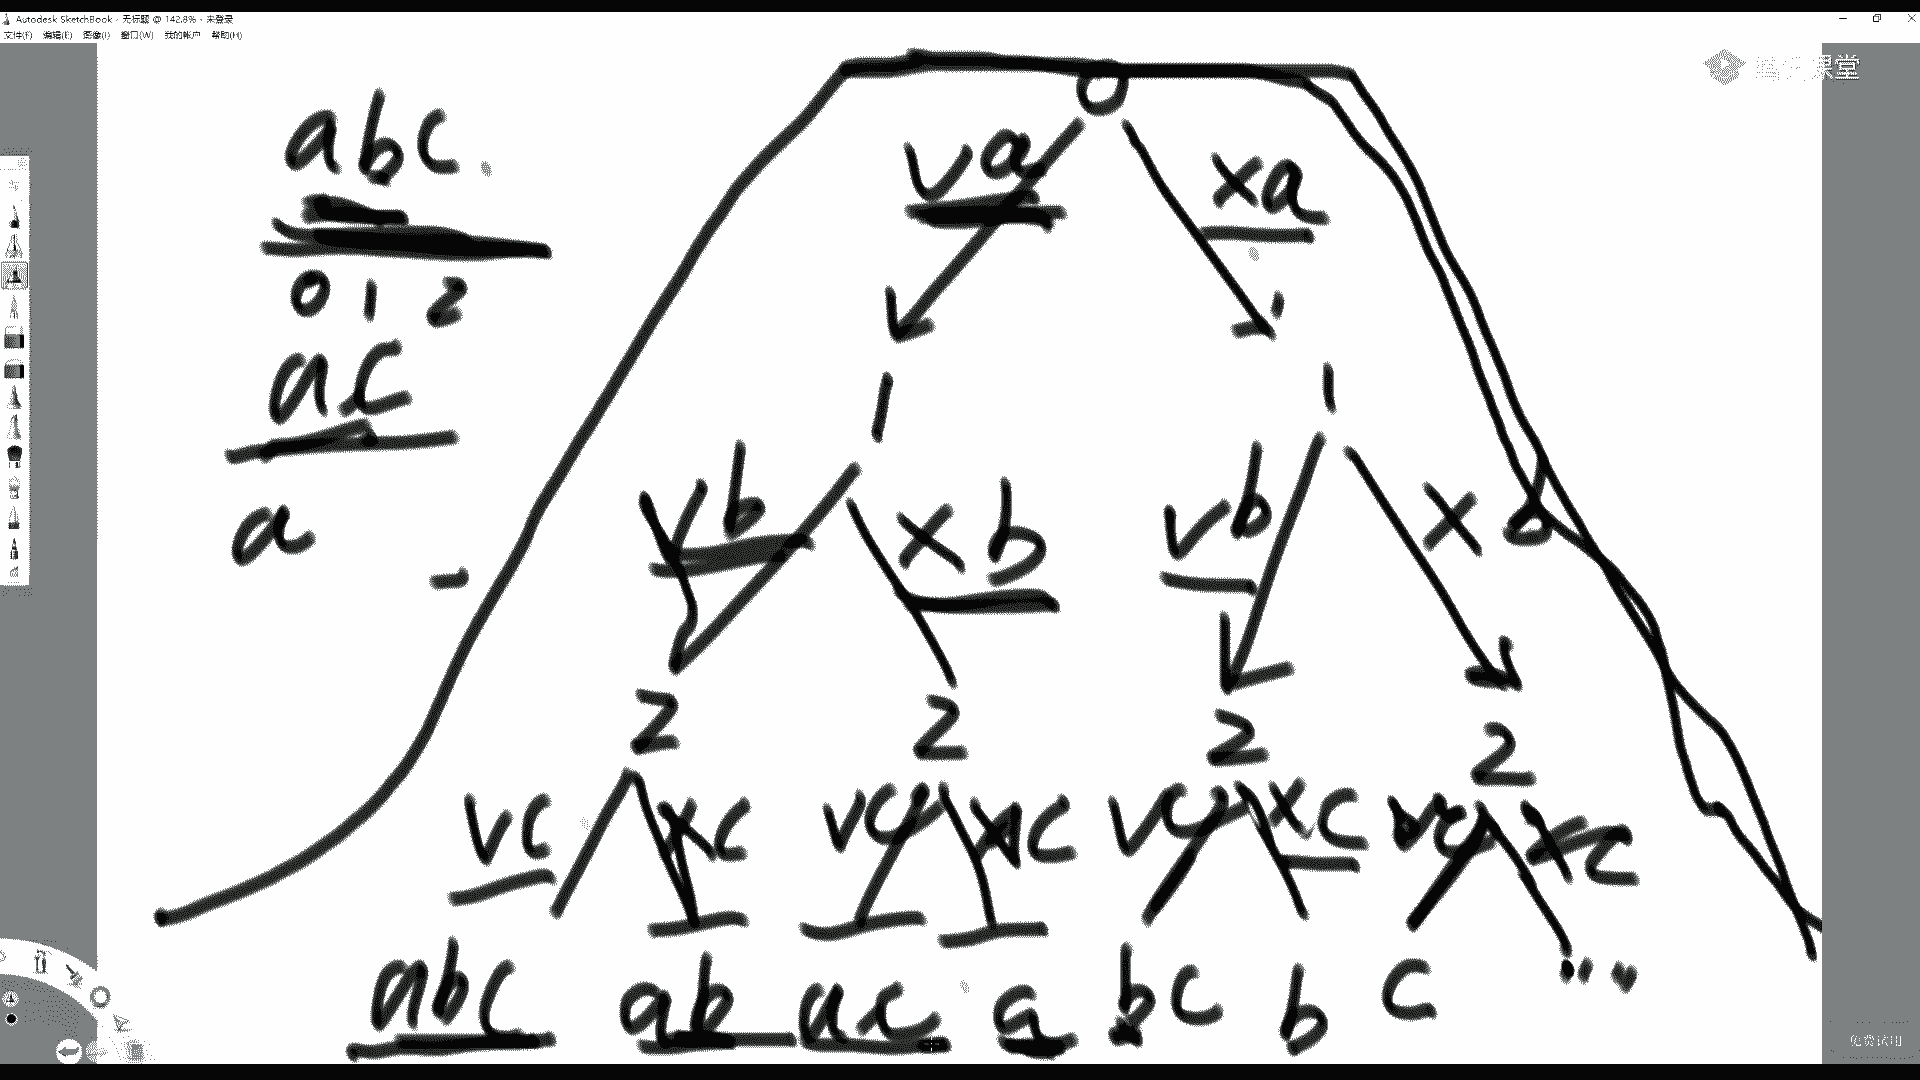 Autodesk SketchBook - 无标题 @ 142.8% - 未登录
文件(F) 编辑(E) 图像(I) 窗口(W) 我的帐户 帮助(H)
腾讯课堂
abc
0 1 2
ac
a
0
va xa
1 1
vb xb vb xb
2 2 2 2
vc xc vc xc vc xc vc xc
abc ab ac a bc b c " "
免费试用